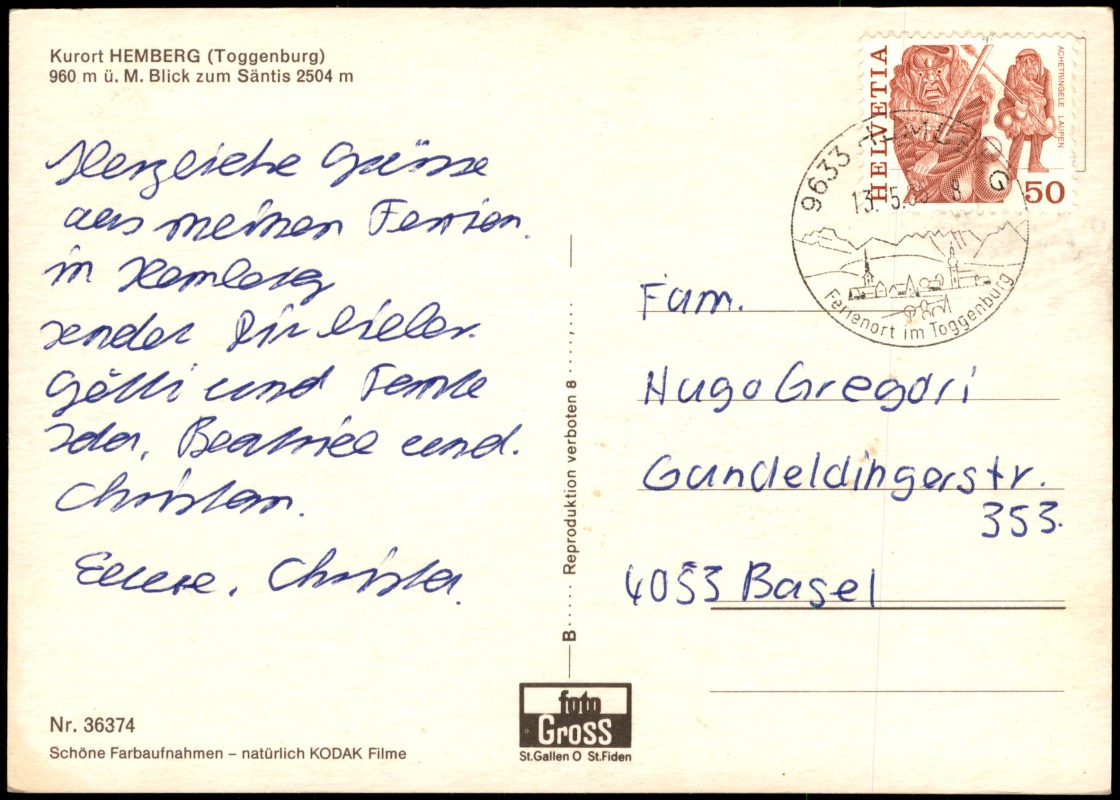 Kurort HEMBERG (Toggenburg)
960 m ü. M. Blick zum Säntis 2504 m
Herzliche Grüsse
aus meinen Ferien.
in Hemberg
sendet Dir lieber.
Götti und Tante
Ida, Beatrice und.
Christian.
Euere, Christa.
Nr. 36374
Schöne Farbaufnahmen – natürlich KODAK Filme
B ..... Reproduktion verboten 8 ......, ...
foto
Gross
St.Gallen O St.Fiden
HELVETIA
ACHETRINGELE LAUPEN
50
9633 HEMBERG
13.-5.80 8
Ferienort im Toggenburg
Fam.
Hugo Gregori
Gundeldingerstr.
353.
4053 Basel